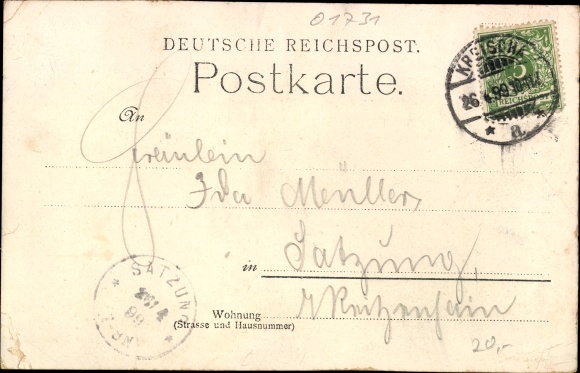 01731
DEUTSCHE REICHSPOST.
Postkarte.
KREISCHA
26. 99
* a. *
5
REICHSPOST
An
Fräulein
Ida Müller,
in Satzung,
Reitzenhain
Wohnung
(Strasse und Hausnummer)
SATZUNG
99
20,-